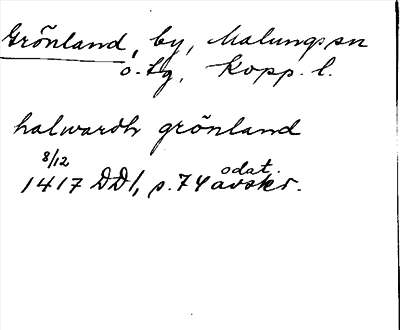 Grönland, by, Malungs sn
o. tg, Kopp. l.
halwardh grönland
8/12
1417 DD1, s. 74 odat. avskr.